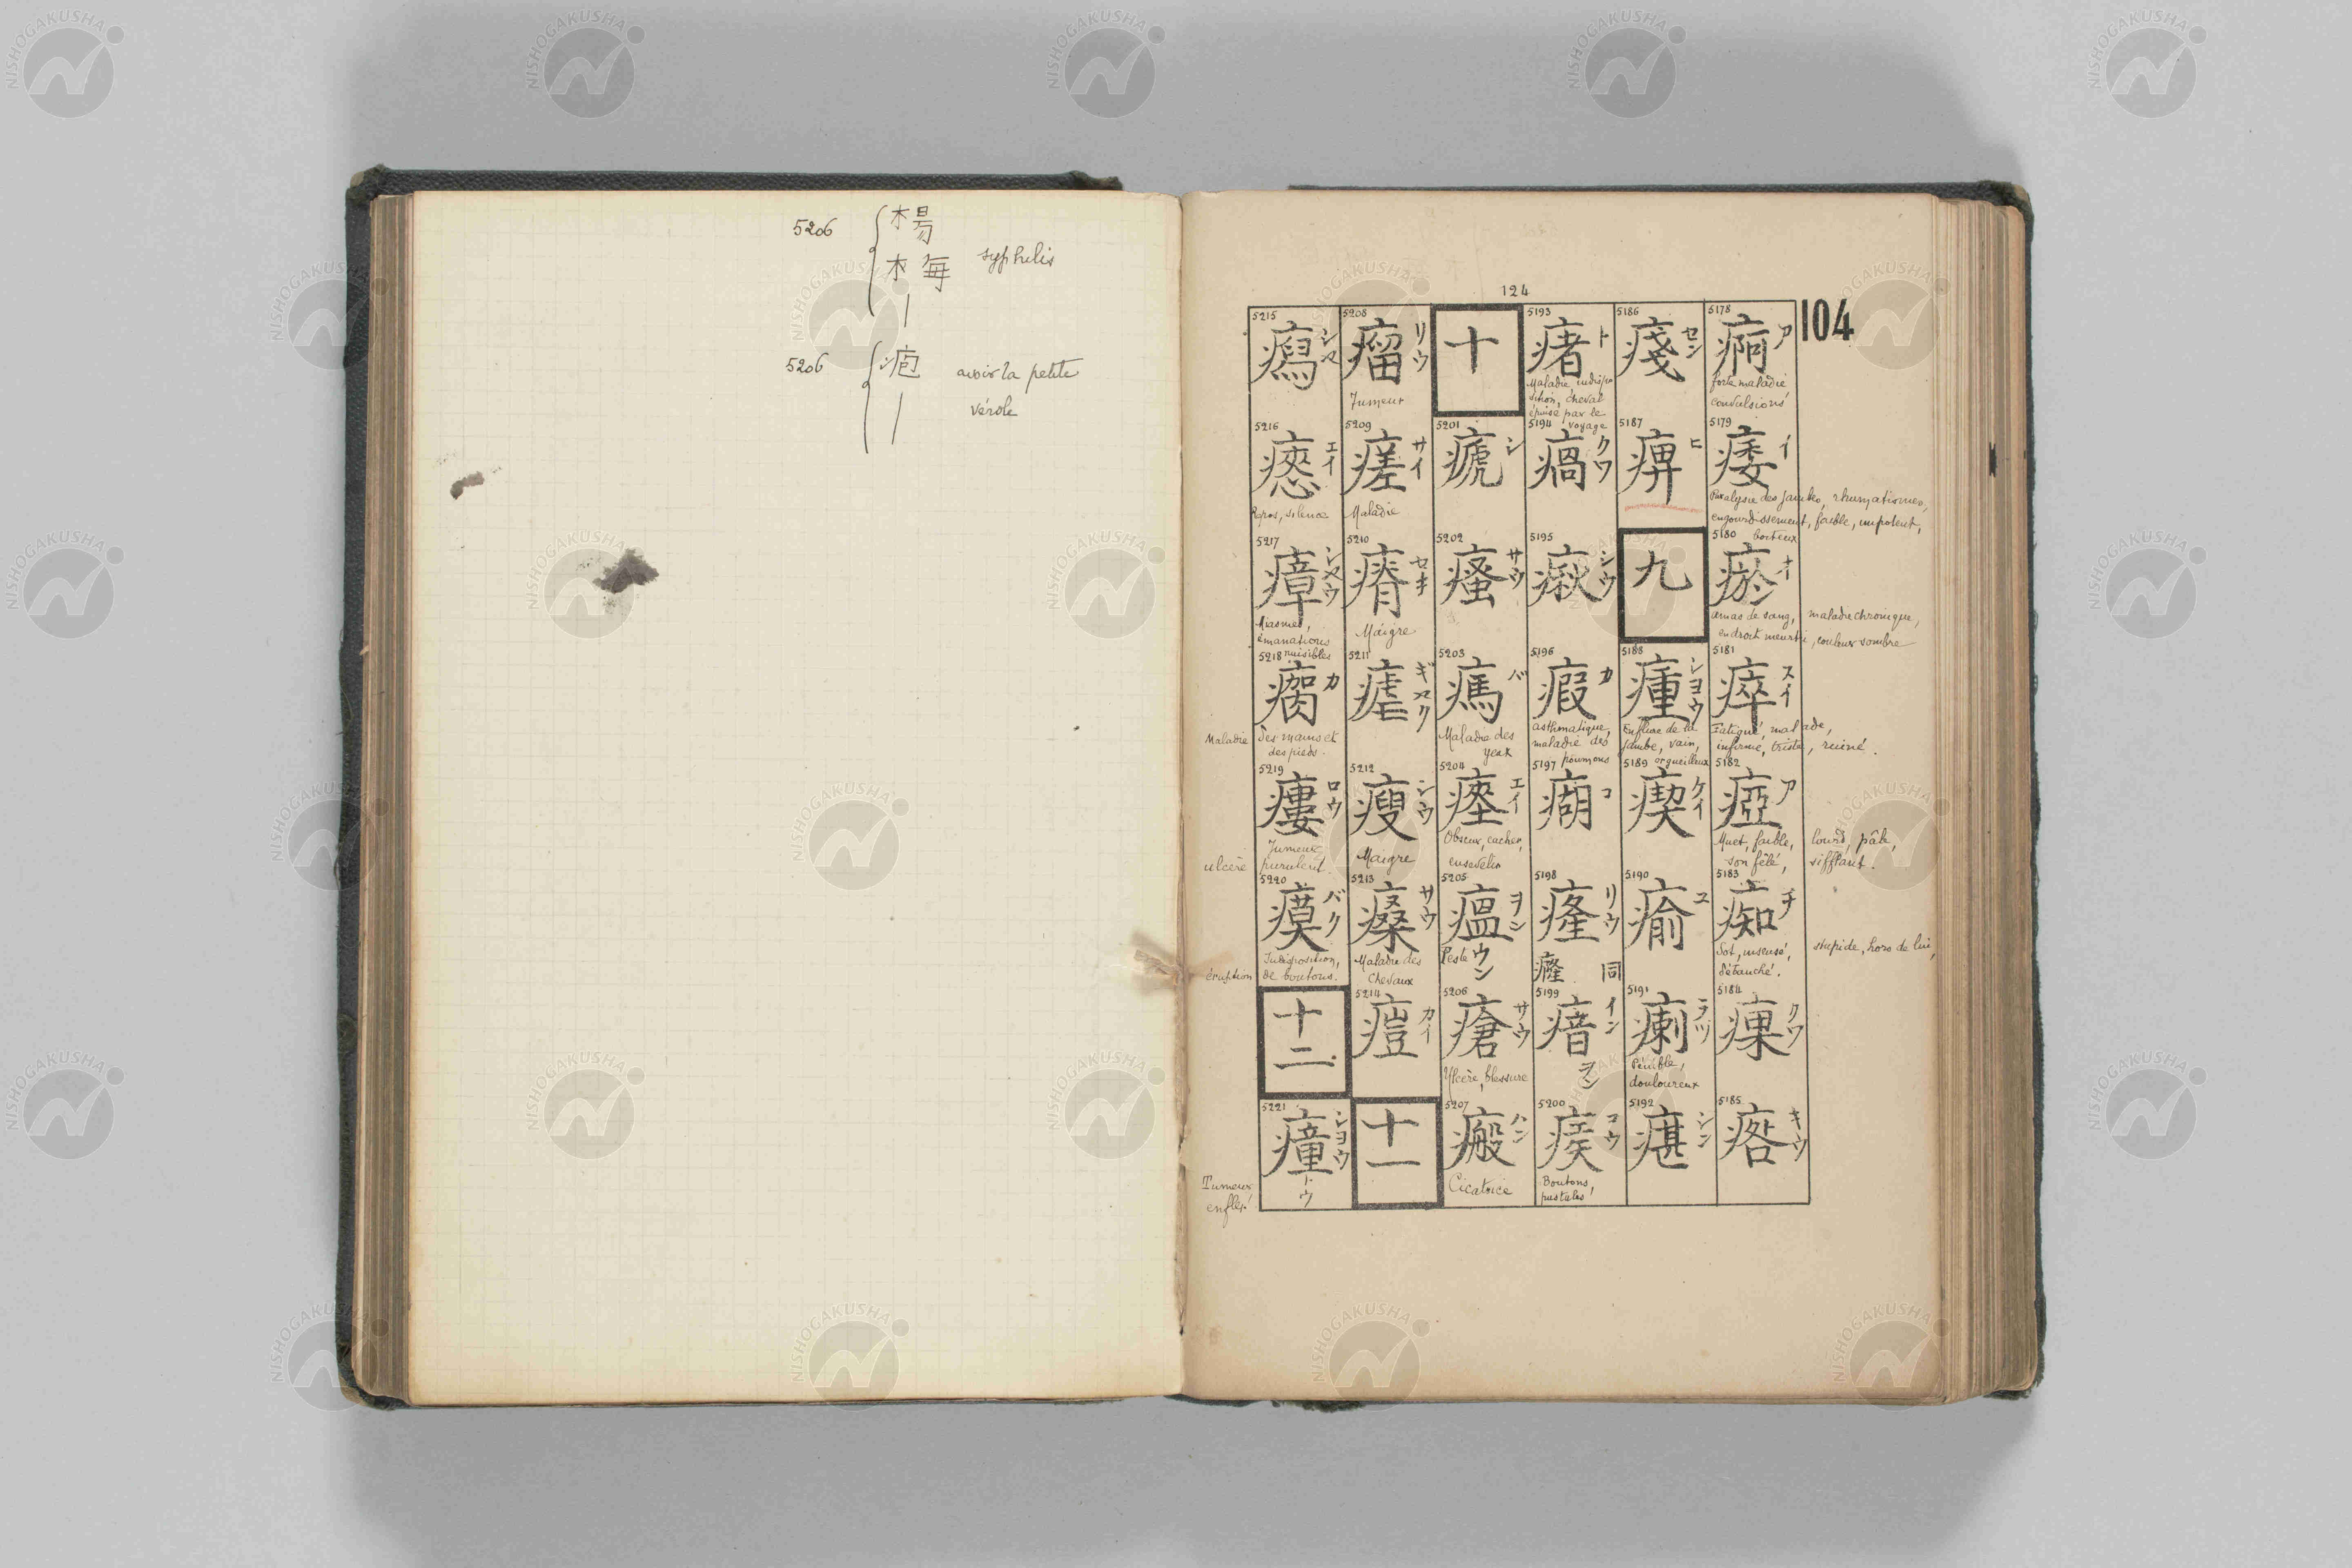 5206 楊
木毎 syphilis
|
5206 疱 avoir la petite
| vérole
124
104
5178 痾 ア
forte maladie
convulsions
5179 痿 イ
Paralysie des jambes, rhumatismes,
engourdissement, faible, impotent,
boiteux
5180 瘀 オ
amas de sang, maladie chronique,
endroit meurtri, couleur sombre
5181 瘁 スイ
Fatigué, malade,
infirme, triste, ruiné.
5182 瘂 ア
Muet, faible, lourd, pâle,
son fêlé, sifflant.
5183 痴 チ
Sot, insensé, stupide, hors de lui,
débauché.
5184 瘰 クワ
5185 㾭 キウ
5186 㾵 セン
5187 痹 ヒ
九
5188 瘇 シヨウ
Enflure de la
jambe, vain,
orgueilleux
5189 瘈 ケイ
5190 瘉 ユ
5191 瘌 ラツ
Pénible,
douloureux
5192 㾕 シン
5193 瘏 ト
Maladie, indispo
sition, cheval
épuisé par le
voyage
5194 瘑 クワ
5195 瘷 シウ
5196 瘕 カ
asthmatique,
maladie des
poumons
5197 瘹 コ
5198 㾤 リウ
癃 同
5199 瘖 イン
ヲン
5200 瘊 コウ
Boutons,
pustules
十
5201 瘨 シ
5202 瘙 サウ
5203 瘍 バ
Maladie des
yeux
5204 瘞 エイ
Obscur, cacher,
ensevelir
5205 瘟 ヲン
Peste ウン
5206 瘡 サウ
Ulcère, blessure
5207 瘢 ハン
Cicatrice
5208 瘤 リウ
Tumeur
5209 瘥 サイ
Maladie
5210 瘠 セキ
Maigre
5211 瘧 ギヤク
5212 瘦 シウ
Maigre
5213 瘵 サウ
Maladie des
chevaux
5214 㾸 カイ
十一
5215 瘍 シヤ
5216 瘱 エイ
Repos, silence
5217 瘴 シヤウ
Miasmes,
émanations
nuisibles
5218 瘸 カ
Maladie des mains et
des pieds.
5219 瘻 ロウ
Tumeur
ulcère purulent.
5220 瘼 バク
Indisposition,
éruption de boutons.
十二
5221 㿈 シヨウ
トウ
Tumeur
enflée!